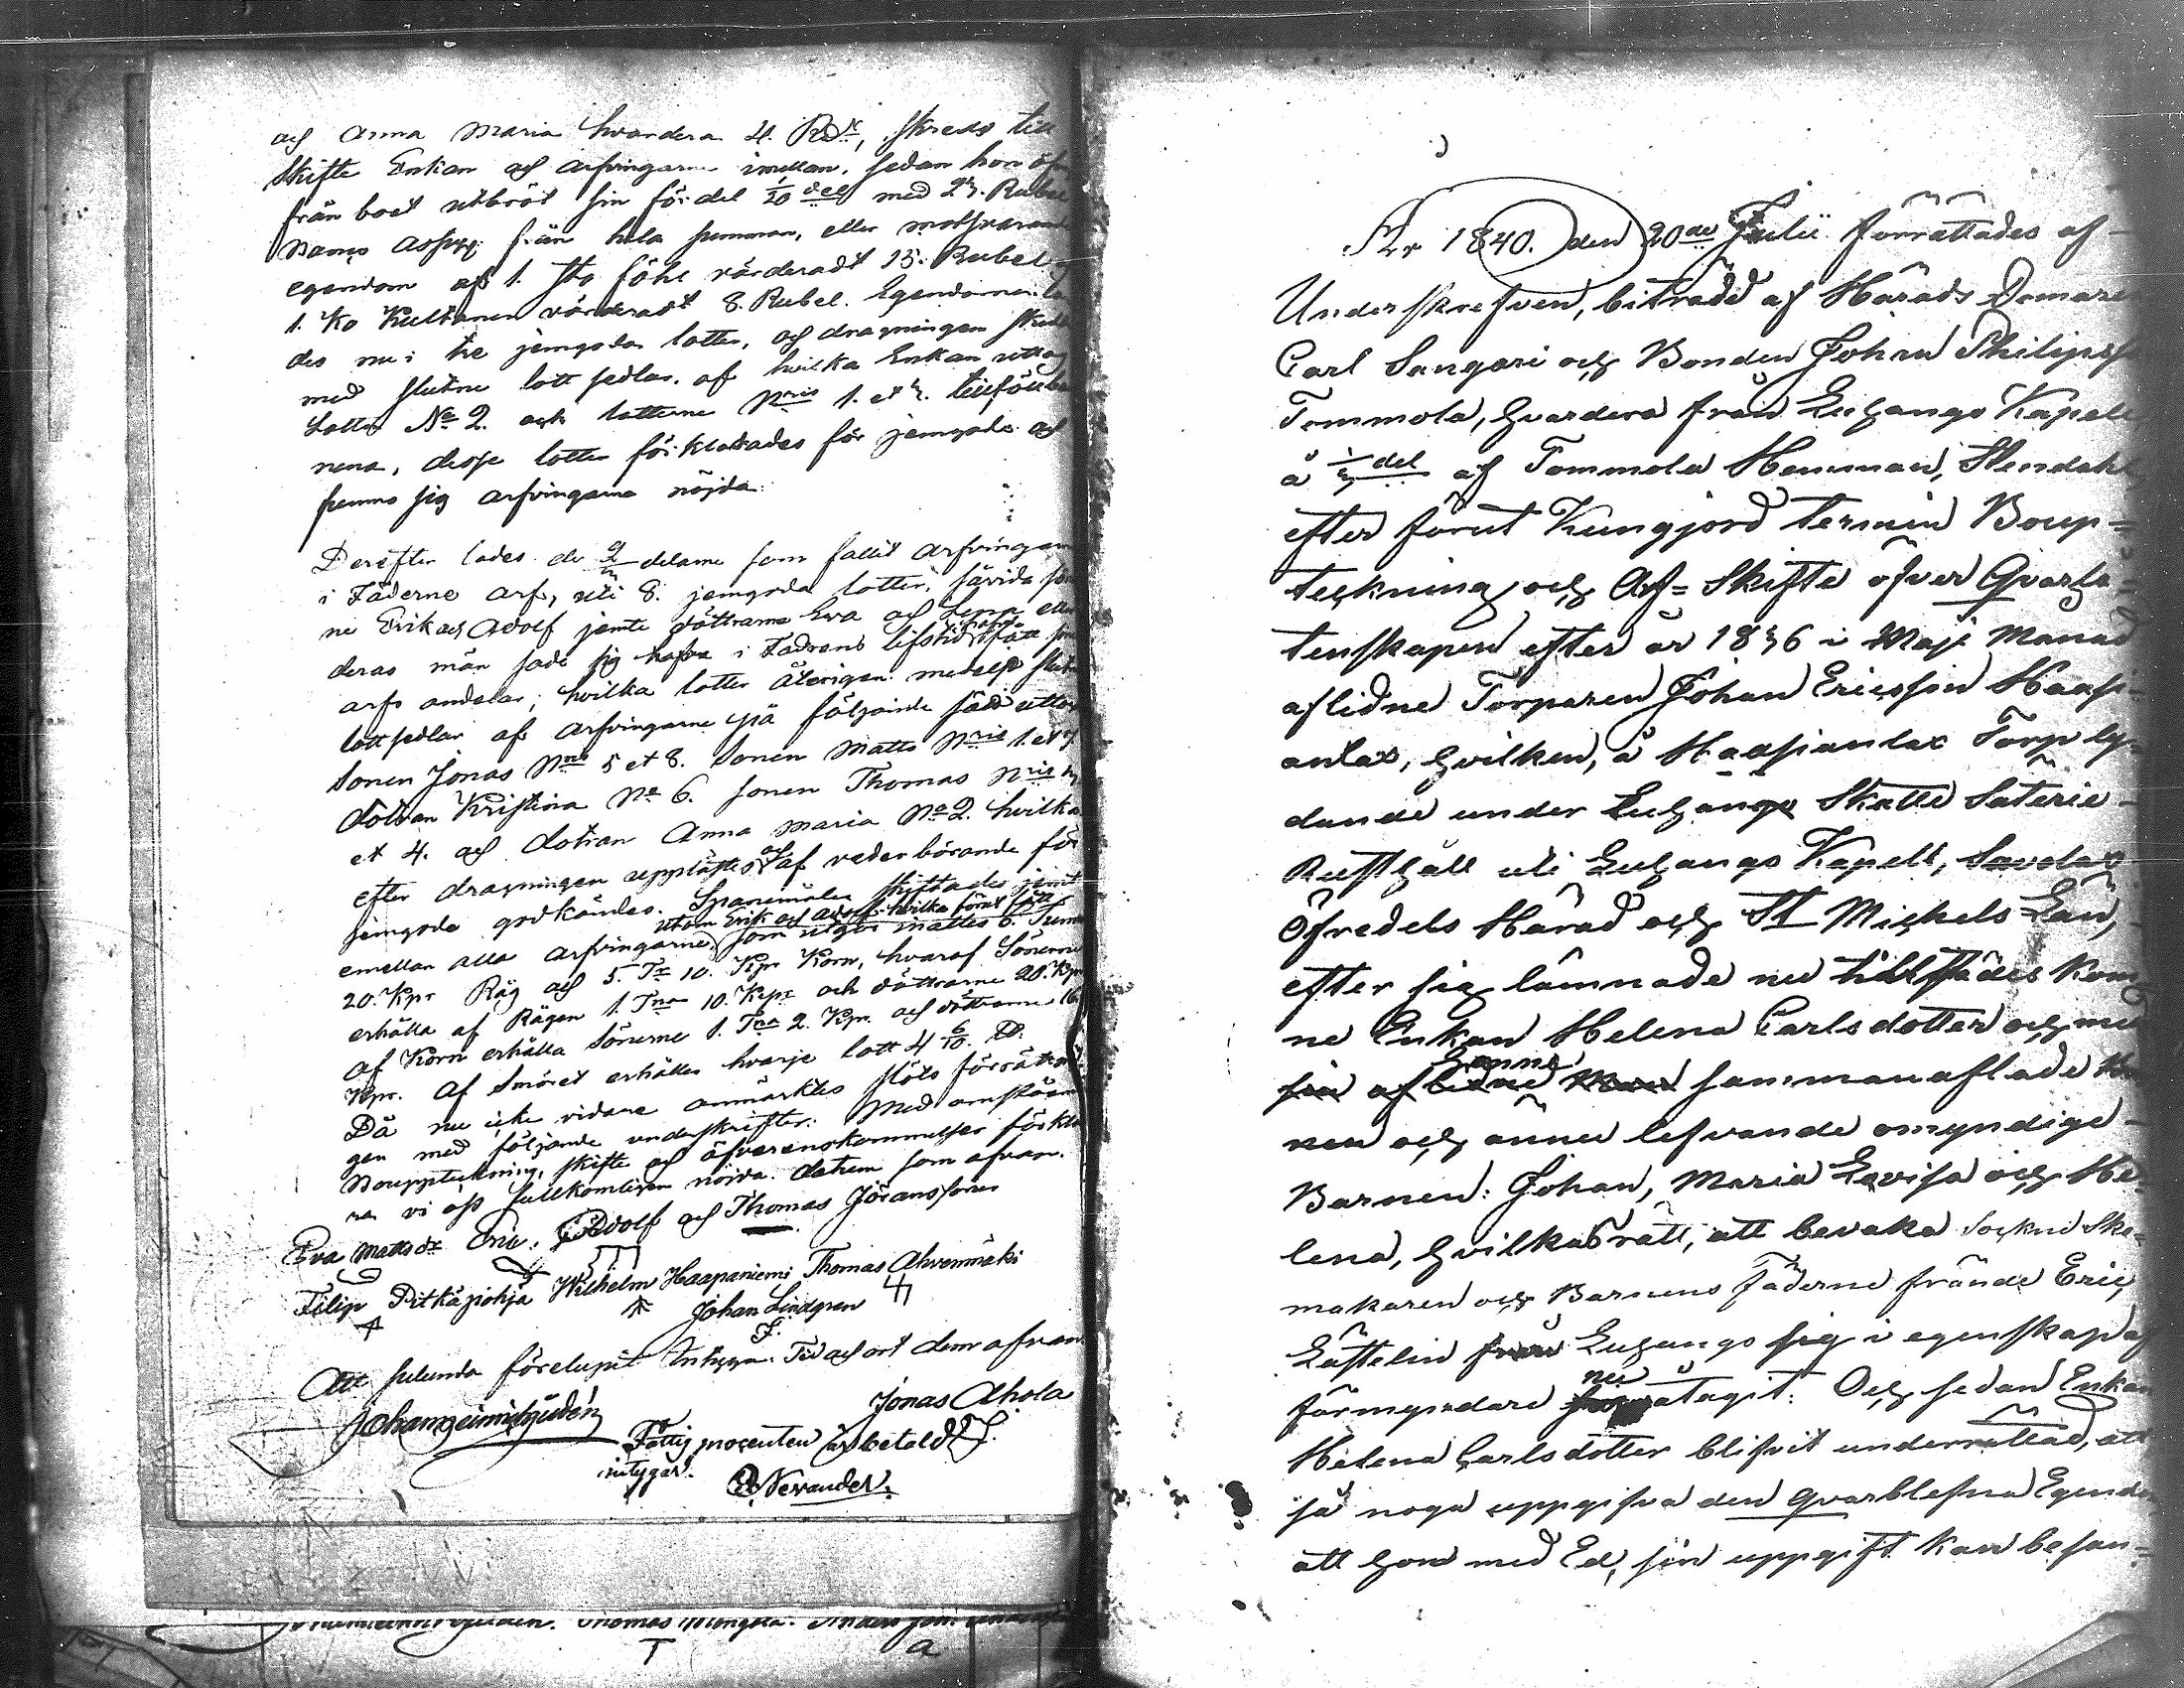 och Anna Maria hvardera 4. Rbl, skreds till
skifte Enkan och arfvingarne imellan, sedan hon öf
från boet utbröt sin fördel 1/20 del med 23. Rubel
Banco Assign: från hela summan, eller motsvarande
egendom af 1. Sto föhl värderadt 15. Rubel
1. Ko Kultanen värderadt 8. Rubel. Egendomen la
des nu i tre jemgoda lotter, och dragningen skedde
med slutne lott sedlar, af hvilka Enkan uttog
Lotten No 2. och lotterne Nris 1. et 3. tillföllo
nena, desse lotter förklarades för jemgoda och
funno sig arfvingarne nöjda.
Derefter lades de 2/3 delarne som fallit arfvingarne
i Fäderne arf, uti 8. jemgoda lotter, såvida söner
ne Erik och Adolf jemte döttrarne Eva och Lena eller
deras män sade sig i Fadrens lifstid hafva fått sine
arfs andelar; hvilka lotter återigen medelst slutne
lott sedlar af arfvingarne på följande sätt uttogs
Sonen Jonas Nris 5 et 8. Sonen Matts Nris 1. et 7
dottran Kristina No 6. sonen Thomas Nris 3
et 4. och dotran Anna Maria No 2. hvilka
efter dragningen upplästes och af vederbörande för
jemgoda godkändes. Spanemålen skiftades jemt
utom Erik och Adolf hvilka förut fått
emellan alla arfvingarne, som utgör mattes 6. Tunn
20. Kpr Råg och 5. Tr 10. Kpr Korn, hvaraf Sönerne
erhålla af Rågen 1. Tna 10. Kpr och döttrarne 20. Kpr
af Korn erhålla Sönerne 1. Tna 2. Kpr. och döttrarne 16
Kpr. Af Smöret erhåller hvarje lott 4 6/10. ℔.
Då nu icke vidare anmärktes slöts förrättnin
gen med följande underskrifter: Med omstående
Bouppteckning, skifte och öfverenskommelser förkla
ra vi oss fullkomligen nöjda. datum som ofvan.
Eva Mattsdr Eric. Adolf och Thomas Jöransson
Filip Pitkäpohja Wilhelm Haapaniemi Thomas Ahvenmäki
Johan Lindgren
Att sålunda förelupit intyga. Tid och ort som ofvan
Jonas Ahola
Fattig procenten är betald
intygar.
Nevander.
År 1840. den 20de Julii förrättades af
Underskrefven, biträdd af Härads Domaren
Carl Sangari och Bonden Johan Philipsson
Tommola, hvardera från Luhango Kapell
å 1/3 del af Tommola Hemman, Stendahl
efter förut Kungjord termin Boup-
teckning och Arf-Skifte öfver Qvarlå-
tenskapen efter år 1836 i Maji Månad
aflidne Torparen Johan Ericsson Haapi-
anlax, hvilken, å Haapianlax Torp ly-
dande under Luhango Skatte Säterie
Rusthåll uti Luhango Kapell, Savolax
Öfredels Härad och St Michels Län,
efter sig lämnade nu tillstädes kom
ne Enkan Helena Carlsdotter och med
henne
sin aflidne Man sammanaflade
nen och ännu lefvande omyndige
Barnen: Johan, Maria Lovisa och He-
lena, hvilkas rätt, att bevaka Socknе Sko-
makaren och Barnens Fäderne frände Eric
Löftelin från Luhango sig i egenskap af
nu
förmyndare åtagit: Och sedan Enkan
Helena Carlsdotter blifvit underrättad, att
så noga uppgifva den qvarblefna Egendo
att hon med Ed, sin uppgift kan besan-